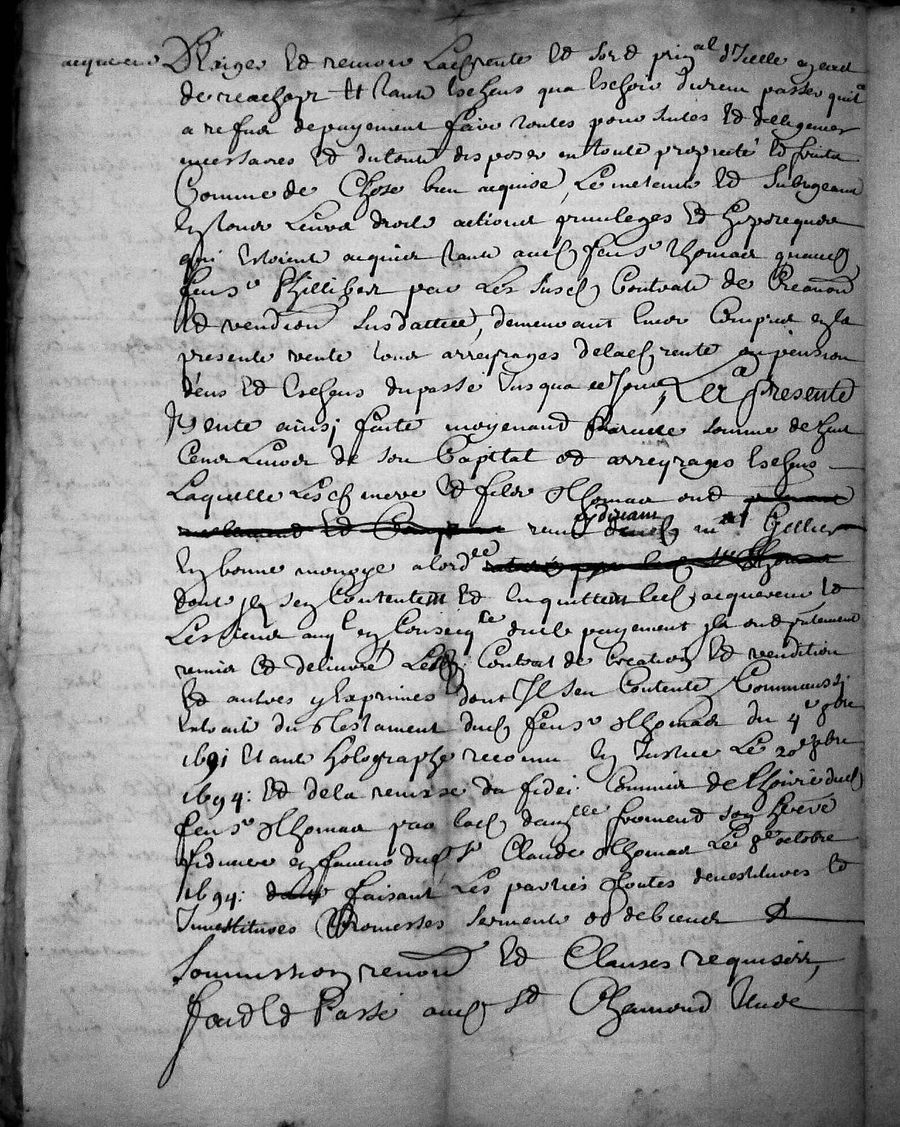 acquereur
Exiger Et recevoir Lad rente Et sort prin.al d'Icelle ayant
de reachept Et tant Escheus qua Escheoir dureni passer quit.e
a refus de payement faire toutes poursuites Et dilligences
necessaires Et du tout disposer en toute proprieté Et fruits
Comme de Chose bien acquise, Le metent Et Subrogeant
En tous Leurs droits actions privileges Et hypoteques
qui Estoient acquises tant aud feu s.r Thomas quaud
feu s.r Phillibert par Les susd Contrats de Creaon
Et vendion susdattés, demeurant Encor Compris En la
presente vente tous arreyrages de lad rente ou pension
deus Et Escheus du passé Jusqua ce Jour, Et a presente
Vente ainsi faite moyenand Pareille somme de huit
Cens Livres de son Capital et arreyrages Escheus
Laquelle Lesd mere Et fils Thomas ont
reeu dud m.e Gellier
En bonne monoye a lord.ce
dont Ils sen Contentent Et En quittent led acquereur Et
Les siens au En Conseq.ce dud payement Ils ont presentement
remis Et delivré Lesd Contrat de Creation Et vendition
Et autres y Exprimés dont Il sen Contente, Comm'aussi
Extrait du Testament dud feu s.r Thomas du 4.e 8bre
1691 Etant holographe reconu En Justice Le 20e 7bre
1694: Et de la remise du fidei Commis de Lhoirie dud
feu s.r Thomas par lad dam.lle froment son hoeré
fiduciere en faveur dud S.r Claude Thomas Le 8e octobre
1694: faisant Les parties Toutes devestitures Et
Investitures Promesses serments et debvoirs &
Soumission, renon Et Clauses requises,
fait Et Passé aud St Chamond Etude